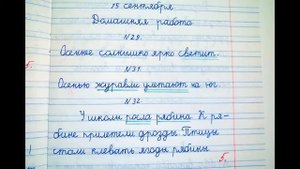 15 сентября
Домашняя работа
N29.
Осеннее солнышко ярко светит.
N31.
Осенью журавли улетают на юг.
N32
У школы росла рябина К ря-
бине прилетели дрозды Птицы
стали клевать ягоды рябины
5.
5.